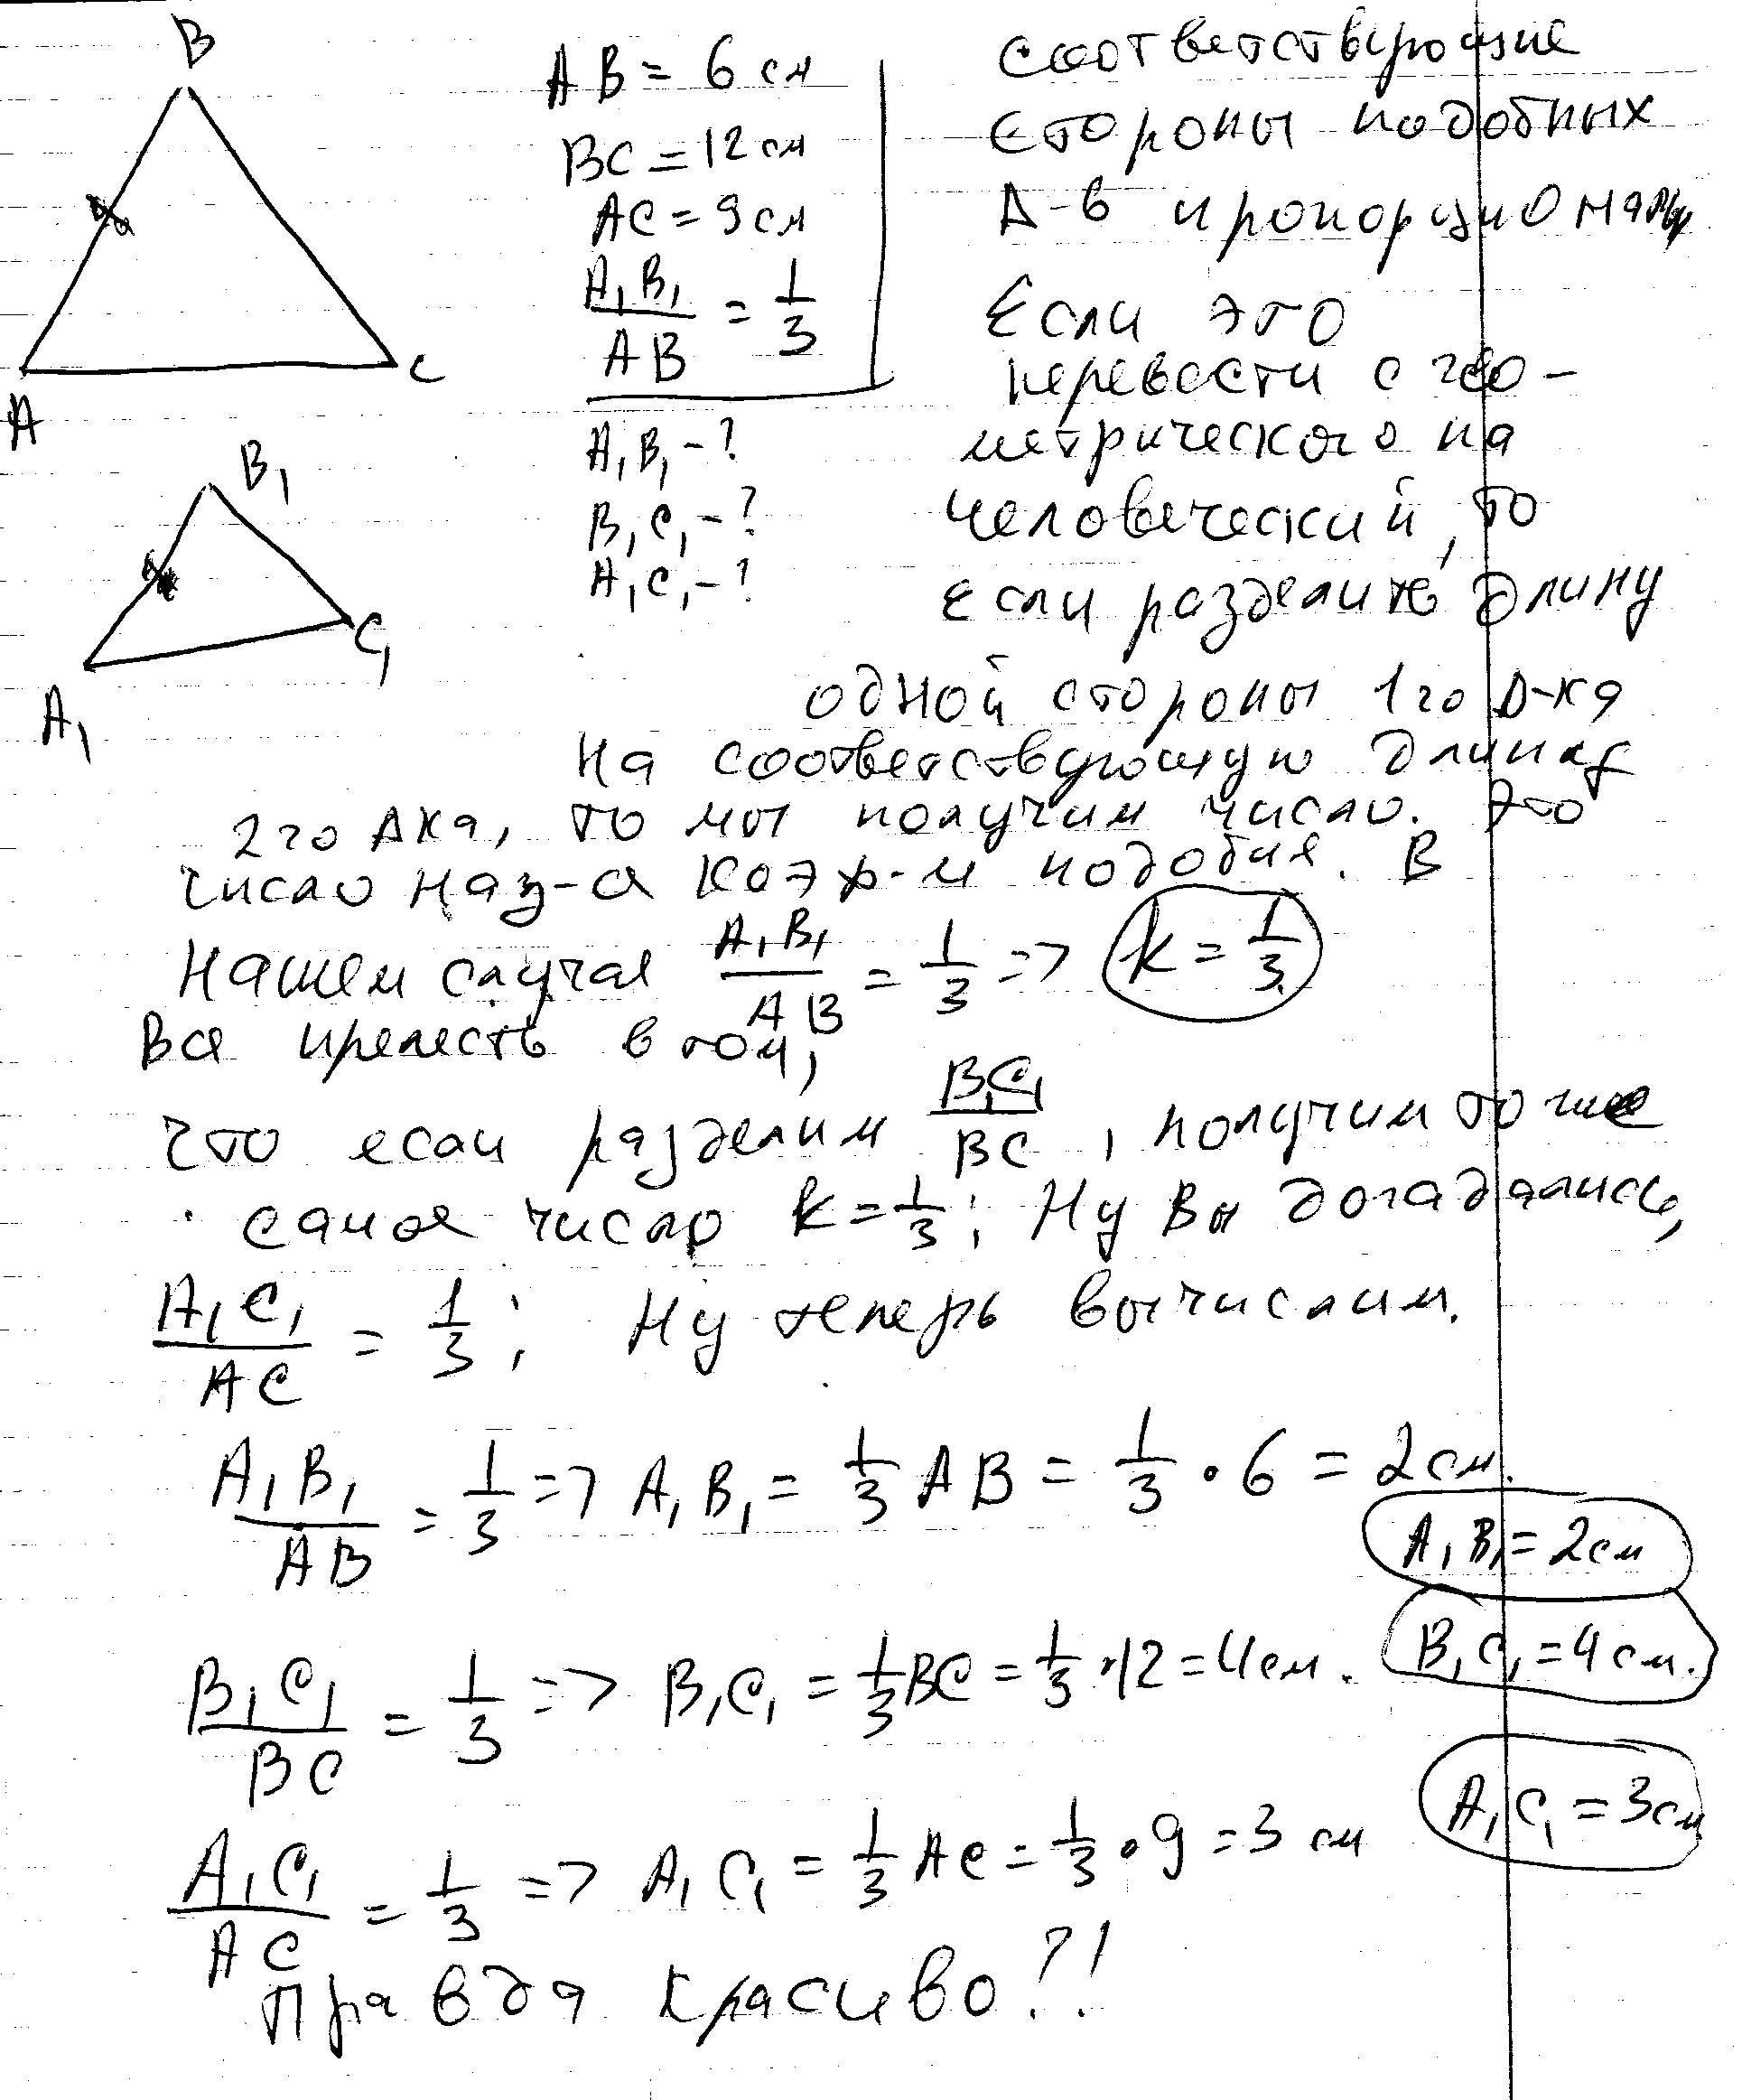 B
A
C
B₁
A₁
C₁
AB = 6 см
BC = 12 см
AC = 9 см
A₁B₁/AB = 1/3
A₁B₁ - ?
B₁C₁ - ?
A₁C₁ - ?
Соответствующие
стороны подобных
Δ-в пропорциональны
Если это
перевести с гео-
метрического на
человеческий, то
если разделить длину
одной стороны 1го Δ-ка
на соответствующую длину
2го Δка, то мы получим число. Это
число наз-ся коэф-м подобия. В
нашем случае A₁B₁/AB = 1/3 => k = 1/3
Вся прелесть в том,
что если разделим B₁C₁/BC, получим то же
самое число k = 1/3; Ну Вы догадались,
A₁C₁/AC = 1/3; Ну теперь вычислим.
A₁B₁/AB = 1/3 => A₁B₁ = 1/3 AB = 1/3 · 6 = 2 см.
A₁B₁ = 2 см
B₁C₁/BC = 1/3 => B₁C₁ = 1/3 BC = 1/3 · 12 = 4 см.
B₁C₁ = 4 см.
A₁C₁/AC = 1/3 => A₁C₁ = 1/3 AC = 1/3 · 9 = 3 см
A₁C₁ = 3 см
Правда красиво?!